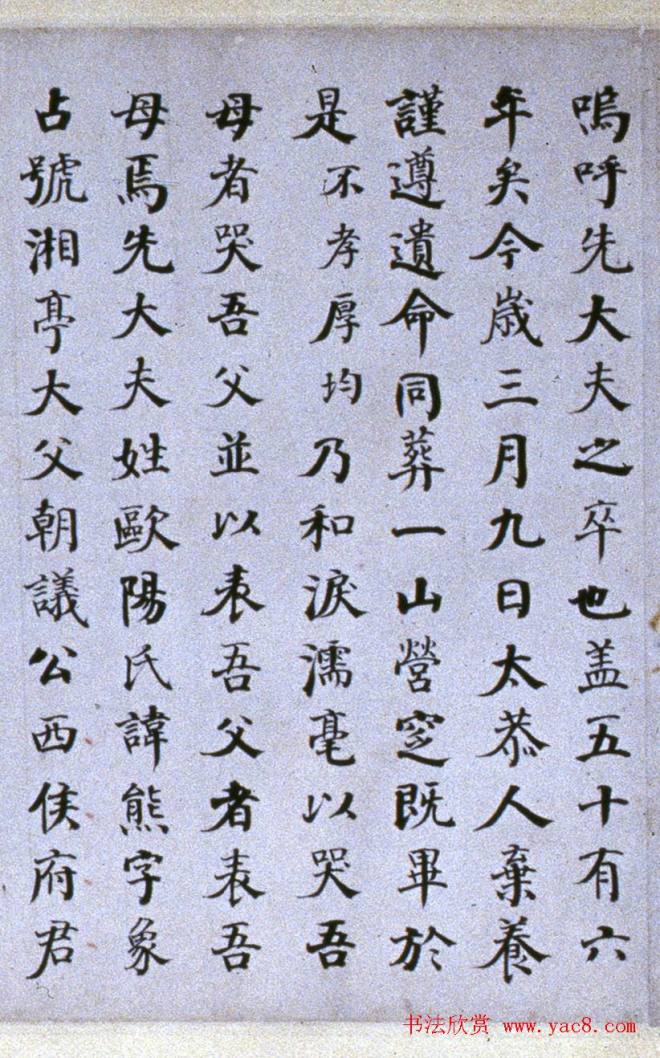 嗚呼先大夫之卒也盖五十有六
年矣今歳三月九日太恭人棄養
謹遵遺命同葬一山營窆既畢於
是不孝厚均乃和淚濡毫以哭吾
母者哭吾父並以表吾父者表吾
母焉先大夫姓歐陽氏諱熊字象
占號湘亭大父朝議公西侯府君
书法欣赏 www.yac8.com